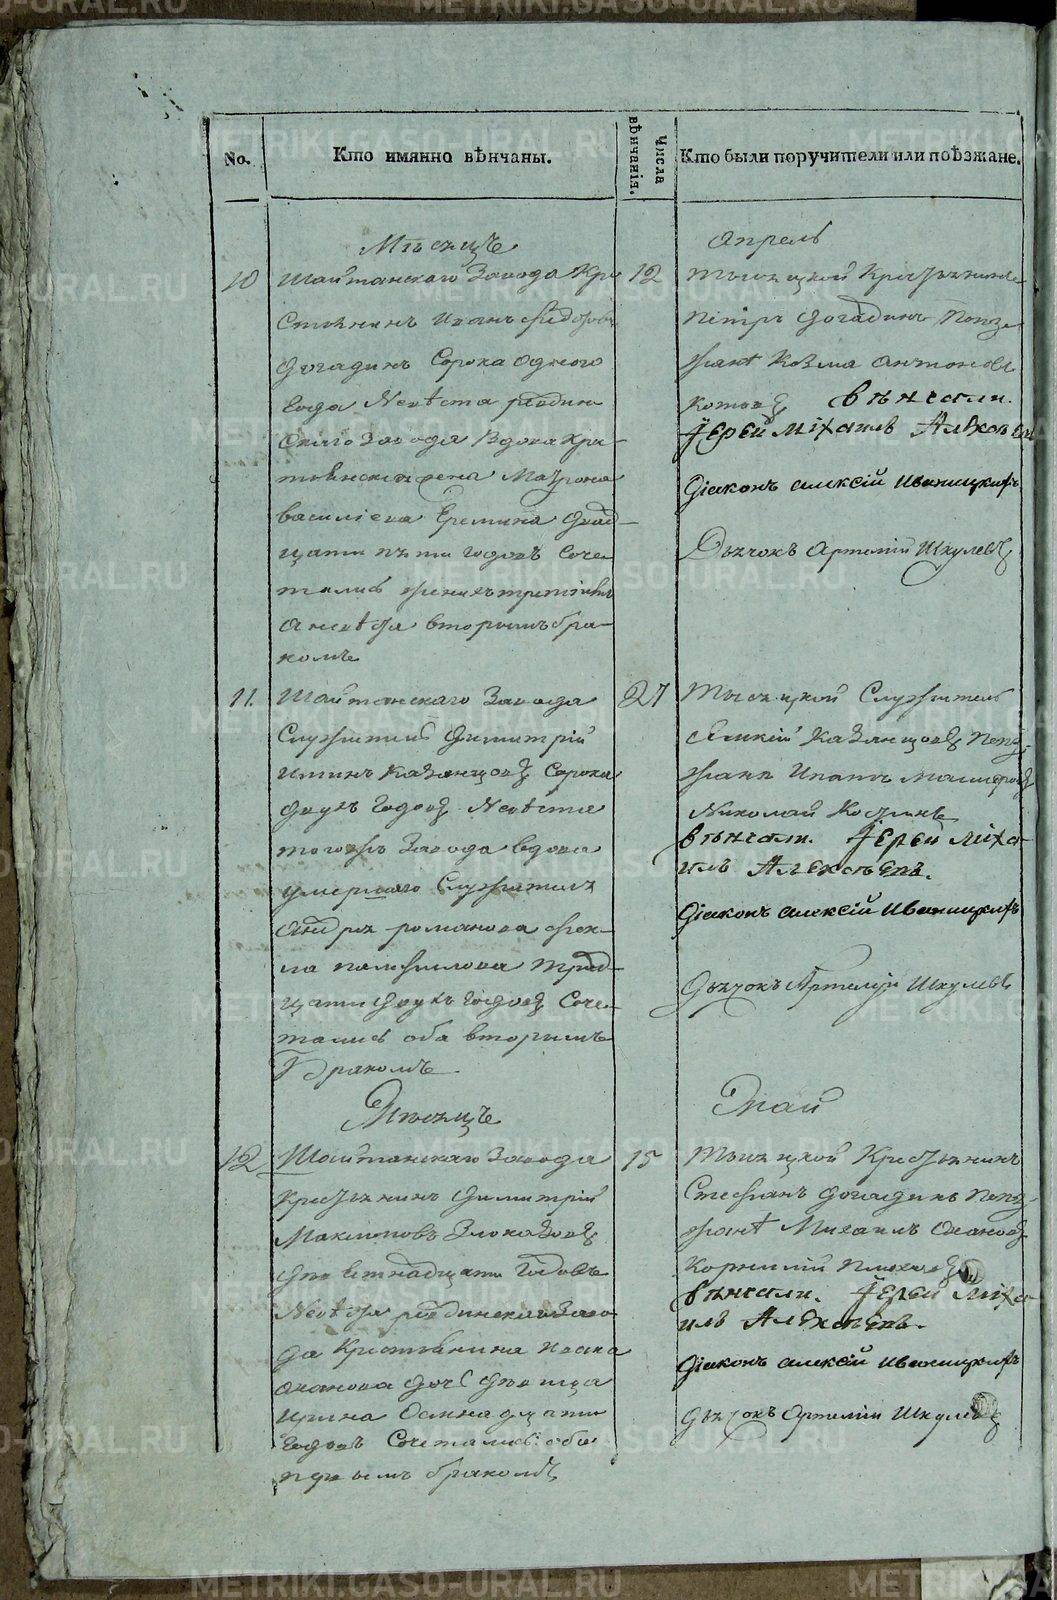 METRIKI.GASO-URAL.RU
No.
Кто имянно вѣнчаны.
Числа вѣнчанія.
Кто были поручители или поѣзжане.
Мѣсяцъ
Апрель
10
Шайтанскаго Завода Кре
стьянинъ Иванъ Федоровъ
Догадинъ Сорока одного
Года Невѣста
Завода Вдова кре
стьянская жена Матрона
василіева Еремина Двад
цати пяти годовъ Соче
тались женихъ третіимъ
а невѣста вторымъ бра
комъ
12
тысяцкой Крестьянинъ
Петръ Догадинъ Поѣз
жанѣ Козма Антоновъ
Котовъ вѣнчали.
Іерей Міхаилъ Алексѣевъ
Діаконъ алексій Иваницкихъ
Дьячокъ Артемій Шкулевъ
11.
Шайтанскаго Завода
Служитель Димитрій
Казанцовъ Сорока
двухъ Годовъ Невѣста
тогожъ Завода вдова
умершаго Служителя
Андрея романова Фек
ла памфилова трид
цати двухъ годовъ Соче
тались оба вторымъ
Бракомъ
27
Тысяцкой Служитель
Казанцовъ Поѣз
жана Ипатъ
Николай Костинъ
вѣнчали. Іерей Міха
илъ Алексѣевъ.
Діаконъ алексій Иваницкихъ
Дьячокъ Артемій Шкулевъ
Мѣсяцъ
Май
12
Шайтанскаго Завода
Крестьянинъ Димитрій
Максимовъ Злоказовъ
Годовъ
Невѣста заво
да Крестьянина
дочь Дѣвица
Ирина Осмнадцати
Годовъ Сочетались оба
первымъ бракомъ
15
Тысяцкой Крестьянинъ
Стефанъ Догадинъ Поѣз
жанѣ Михаилъ
Корнилій
вѣнчали. Іерей Міха
илъ Алексѣевъ.
Діаконъ алексій Иваницкихъ
Дьячокъ Артемій Шкулевъ